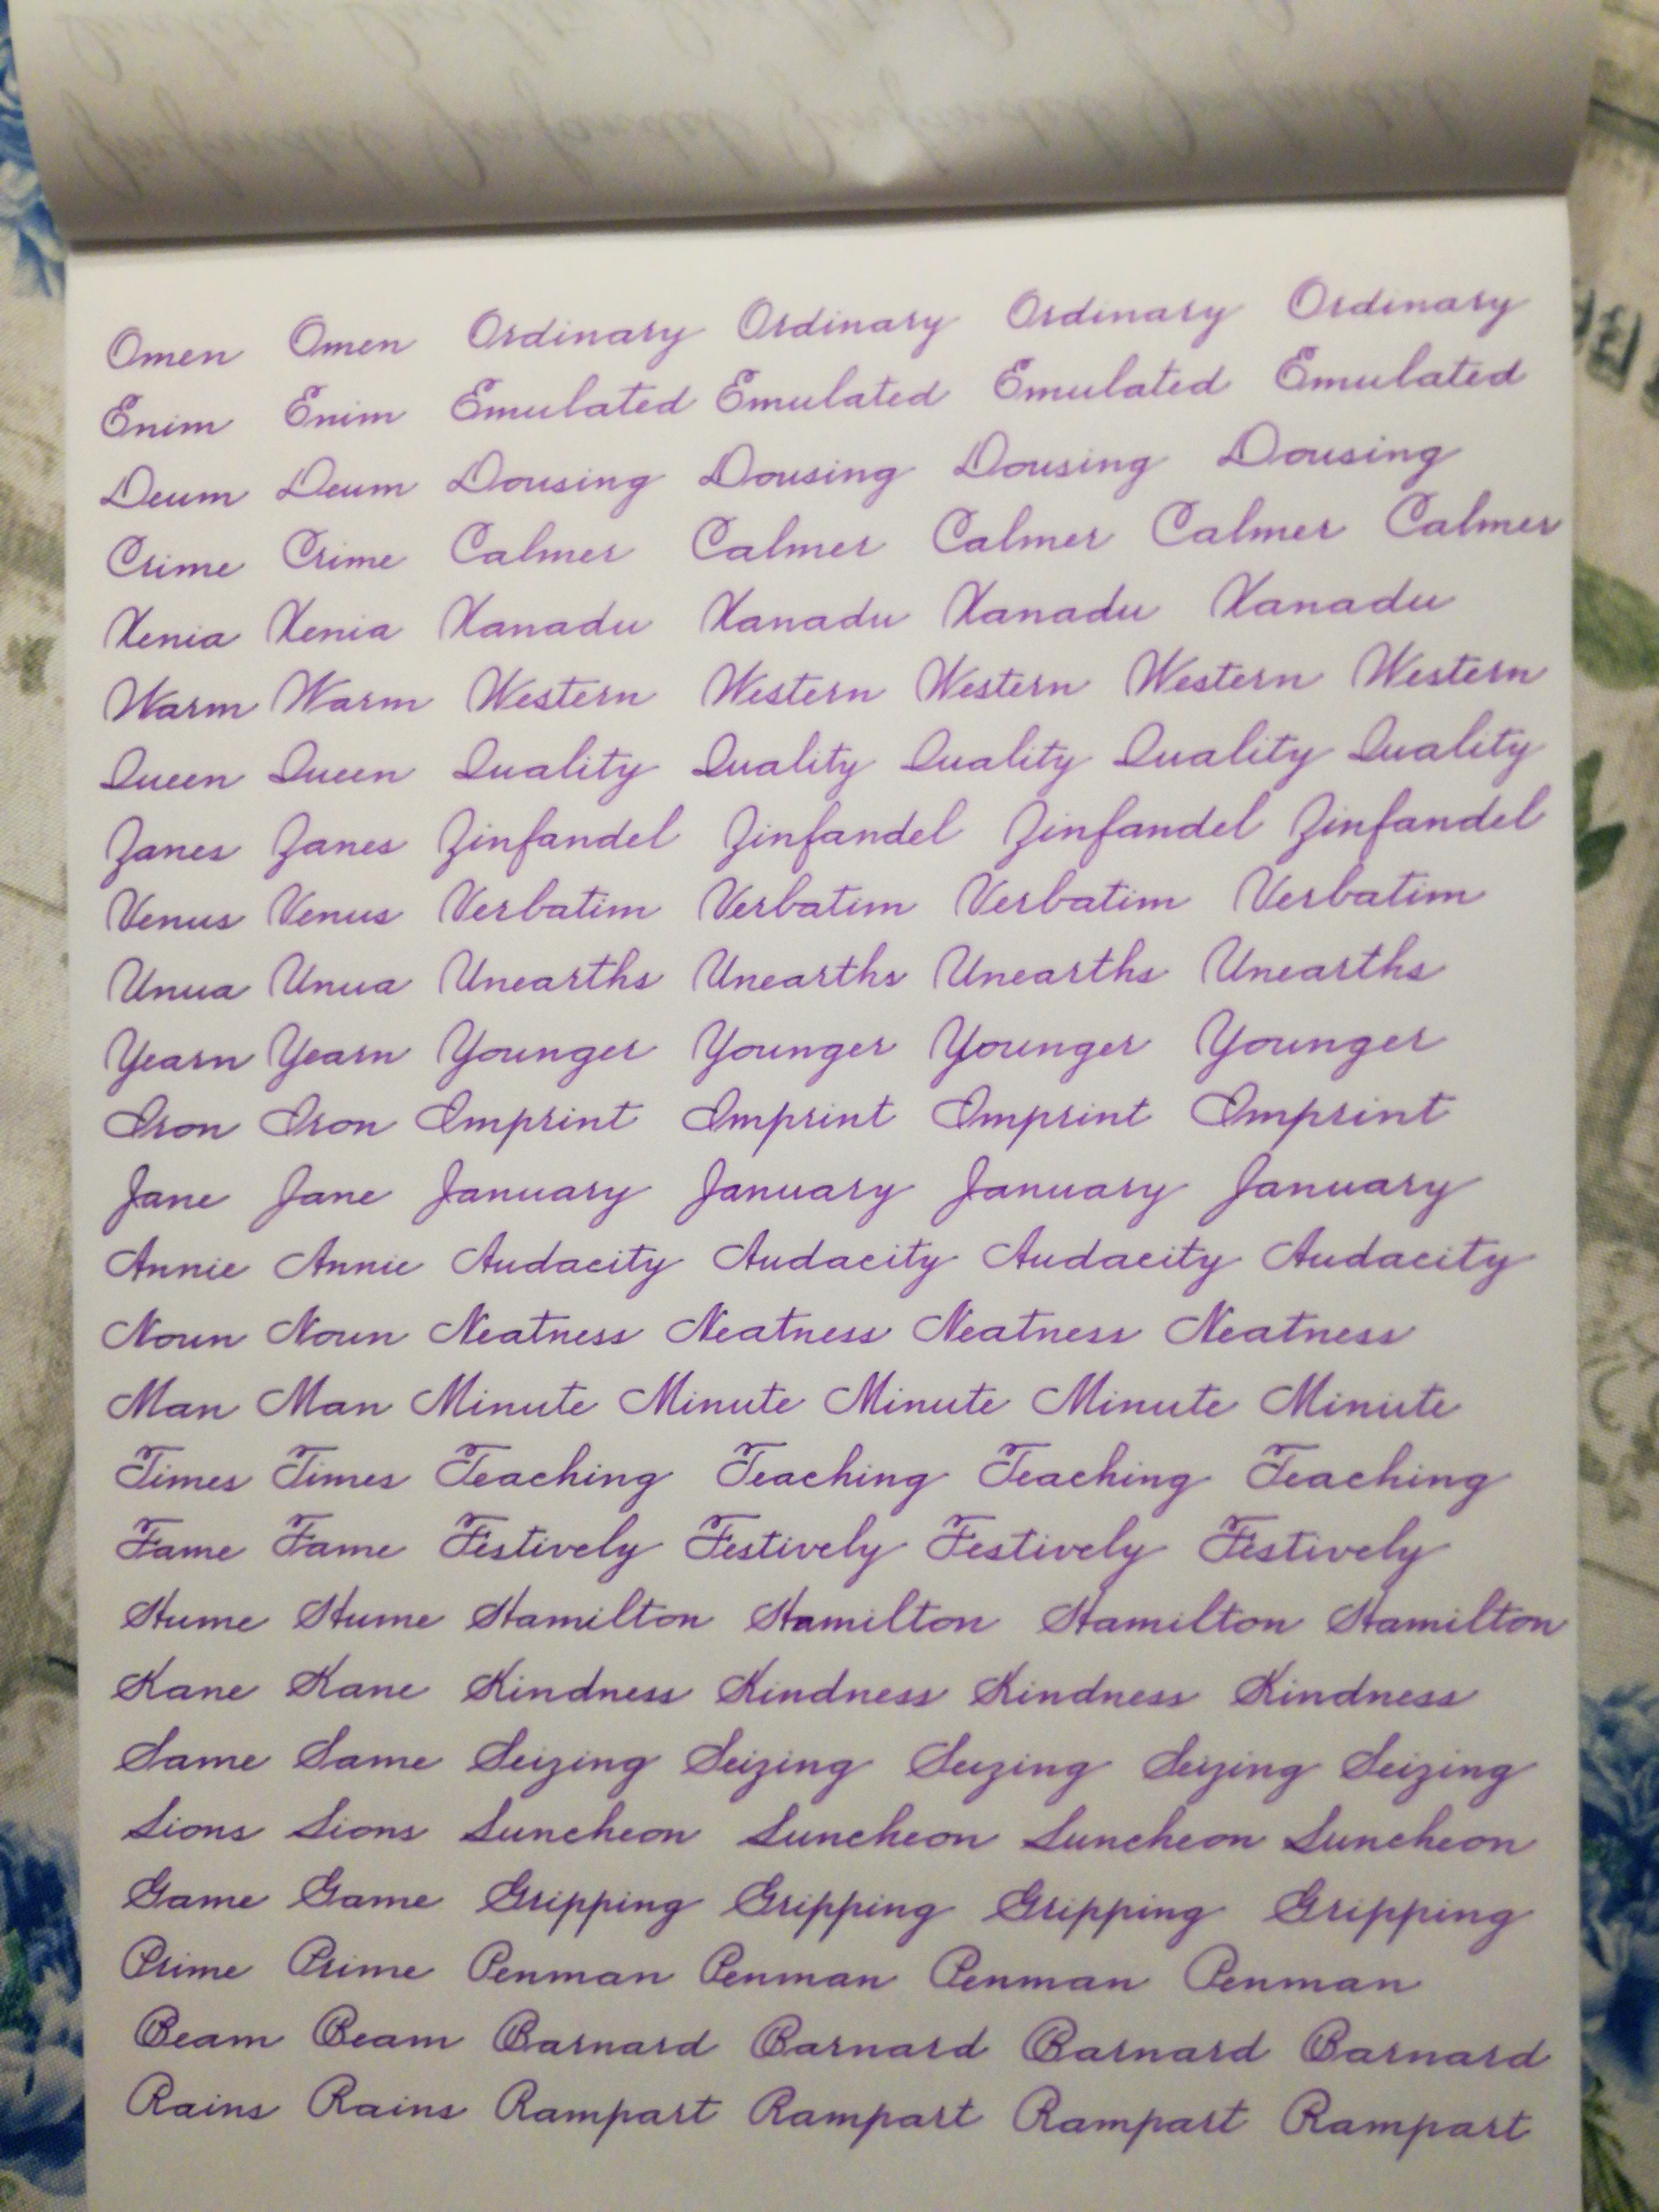 Omen Omen Ordinary Ordinary Ordinary Ordinary
Enim Enim Emulated Emulated Emulated Emulated
Deum Deum Dousing Dousing Dousing Dousing
Crime Crime Calmer Calmer Calmer Calmer Calmer
Xenia Xenia Xanadu Xanadu Xanadu Xanadu
Warm Warm Western Western Western Western Western
Queen Queen Quality Quality Quality Quality Quality
Zanes Zanes Zinfandel Zinfandel Zinfandel Zinfandel
Venus Venus Verbatim Verbatim Verbatim Verbatim
Unua Unua Unearths Unearths Unearths Unearths
Yearn Yearn Younger Younger Younger Younger
Iron Iron Imprint Imprint Imprint Imprint
Jane Jane January January January January
Annie Annie Audacity Audacity Audacity Audacity
Noun Noun Neatness Neatness Neatness Neatness
Man Man Minute Minute Minute Minute Minute
Times Times Teaching Teaching Teaching Teaching
Fame Fame Festively Festively Festively Festively
Hume Hume Hamilton Hamilton Hamilton Hamilton
Kane Kane Kindness Kindness Kindness Kindness
Same Same Seizing Seizing Seizing Seizing Seizing
Lions Lions Luncheon Luncheon Luncheon Luncheon
Game Game Gripping Gripping Gripping Gripping
Prime Prime Penman Penman Penman Penman
Beam Beam Barnard Barnard Barnard Barnard
Rains Rains Rampart Rampart Rampart Rampart